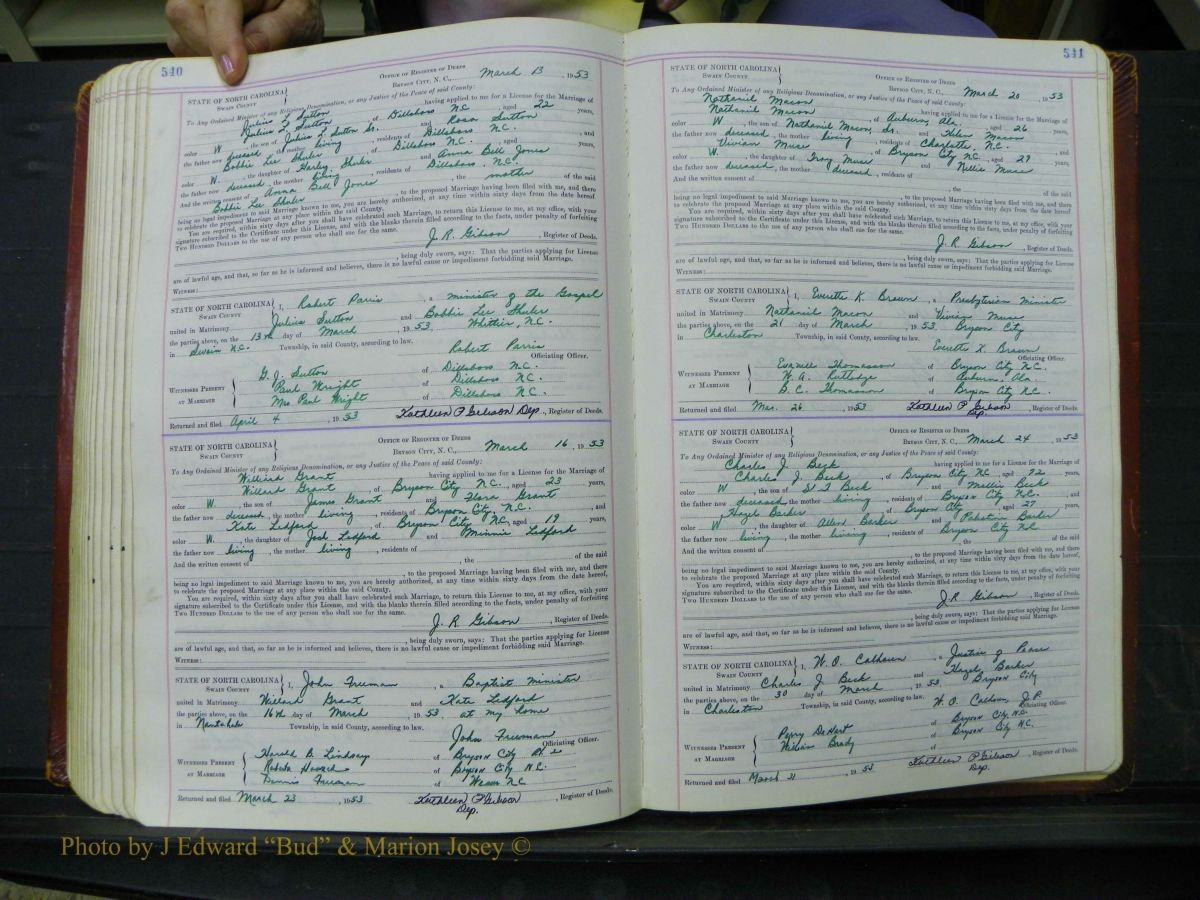 540
STATE OF NORTH CAROLINA
SWAIN COUNTY
OFFICE OF REGISTER OF DEEDS
BRYSON CITY, N. C., March 13, 1953
To Any Ordained Minister of any Religious Denomination, or any Justice of the Peace of said County:
Julius L Sutton having applied to me for a License for the Marriage of
Julius L Sutton, of Dillsboro N.C., aged 22 years,
color W, the son of Julius L Sutton Sr. and Rosa Sutton
the father now deceased, the mother living, residents of Dillsboro N.C., and
Bobbie Lee Shuler of Dillsboro N.C. aged years,
color W., the daughter of Harley Shuler and Anna Bell Jones
the father now deceased, the mother living, residents of Dillsboro, N.C.
And the written consent of Anna Bell Jones, the mother of the said
Bobbie Lee Shuler, to the proposed Marriage having been filed with me, and there
being no legal impediment to said Marriage known to me, you are hereby authorized, at any time within sixty days from the date hereof,
to celebrate the proposed Marriage at any place within the said County.
You are required, within sixty days after you shall have celebrated such Marriage, to return this License to me, at my office, with your
signature subscribed to the Certificate under this License, and with the blanks therein filled according to the facts, under penalty of forfeiting
TWO HUNDRED DOLLARS to the use of any person who shall sue for the same.
J. R. Gibson, Register of Deeds.
, being duly sworn, says: That the parties applying for License
are of lawful age, and that, so far as he is informed and believes, there is no lawful cause or impediment forbidding said Marriage.
WITNESS:
STATE OF NORTH CAROLINA
SWAIN COUNTY
I, Robert Parris, a minister of the Gospel
united in Matrimony Julius Sutton and Bobbie Lee Shuler
the parties above, on the 13th day of March, 1953, Whittier, N.C.
in Swain N.C. Township, in said County, according to law.
Robert Parris
Officiating Officer.
WITNESSES PRESENT AT MARRIAGE
G. J. Sutton of Dillsboro N.C.
Paul Wright of Dillsboro N.C.
Mrs Paul Wright of Dillsboro N.C.
Returned and filed April 4, 1953 Kathleen P Gibson Dep., Register of Deeds.
STATE OF NORTH CAROLINA
SWAIN COUNTY
OFFICE OF REGISTER OF DEEDS
BRYSON CITY, N. C., March 16, 1953
To Any Ordained Minister of any Religious Denomination, or any Justice of the Peace of said County:
Willard Grant having applied to me for a License for the Marriage of
Willard Grant, of Bryson City N.C., aged 23 years,
color W., the son of James Grant and Flora Grant
the father now deceased, the mother living, residents of Bryson City, N.C., and
Kate Ledford of Bryson City N.C., aged 19 years,
color W., the daughter of Josh Ledford and Minnie Ledford
the father now living, the mother living, residents of
And the written consent of, the of the said
, to the proposed Marriage having been filed with me, and there
being no legal impediment to said Marriage known to me, you are hereby authorized, at any time within sixty days from the date hereof,
to celebrate the proposed Marriage at any place within the said County.
You are required, within sixty days after you shall have celebrated such Marriage, to return this License to me, at my office, with your
signature subscribed to the Certificate under this License, and with the blanks therein filled according to the facts, under penalty of forfeiting
TWO HUNDRED DOLLARS to the use of any person who shall sue for the same.
J. R. Gibson, Register of Deeds.
, being duly sworn, says: That the parties applying for License
are of lawful age, and that, so far as he is informed and believes, there is no lawful cause or impediment forbidding said Marriage.
WITNESS:
STATE OF NORTH CAROLINA
SWAIN COUNTY
I, John Freeman, a Baptist minister
united in Matrimony Willard Grant and Kate Ledford
the parties above, on the 16th day of March, 1953, at my home
in Nantahala Township, in said County, according to law.
John Freeman
Officiating Officer.
WITNESSES PRESENT AT MARRIAGE
Harold B. Lindsay of Bryson City Rt. 2
of Bryson City N.C.
Dennis Freeman of N.C.
Returned and filed March 23, 1953 Kathleen P Gibson Dep., Register of Deeds.
541
STATE OF NORTH CAROLINA
SWAIN COUNTY
OFFICE OF REGISTER OF DEEDS
BRYSON CITY, N. C., March 20, 1953
To Any Ordained Minister of any Religious Denomination, or any Justice of the Peace of said County:
Nathaniel Macon having applied to me for a License for the Marriage of
Nathaniel Macon, of Auburn, Ala., aged 26 years,
color W, the son of Nathaniel Macon, Sr. and Helen Macon
the father now deceased, the mother living, residents of Charlotte, N.C., and
Vivian Muse of Bryson City N.C. aged 29 years,
color W., the daughter of Troy Muse and Nellie Muse
the father now deceased, the mother deceased, residents of
And the written consent of, the of the said
, to the proposed Marriage having been filed with me, and there
being no legal impediment to said Marriage known to me, you are hereby authorized, at any time within sixty days from the date hereof,
to celebrate the proposed Marriage at any place within the said County.
You are required, within sixty days after you shall have celebrated such Marriage, to return this License to me, at my office, with your
signature subscribed to the Certificate under this License, and with the blanks therein filled according to the facts, under penalty of forfeiting
TWO HUNDRED DOLLARS to the use of any person who shall sue for the same.
J. R. Gibson, Register of Deeds.
, being duly sworn, says: That the parties applying for License
are of lawful age, and that, so far as he is informed and believes, there is no lawful cause or impediment forbidding said Marriage.
WITNESS:
STATE OF NORTH CAROLINA
SWAIN COUNTY
I, Everette K. Brown, a Presbyterian Minister
united in Matrimony Nathaniel Macon and Vivian Muse
the parties above, on the 21 day of March, 1953, Bryson City
in Charleston Township, in said County, according to law.
Everette K. Brown
Officiating Officer.
WITNESSES PRESENT AT MARRIAGE
Evanell Thomasson of Bryson City N.C.
W. A. Rutledge of Auburn, Ala.
B. C. Thomasson of Bryson City N.C.
Returned and filed Mar. 26, 1953 Kathleen P Gibson Dep., Register of Deeds.
STATE OF NORTH CAROLINA
SWAIN COUNTY
OFFICE OF REGISTER OF DEEDS
BRYSON CITY, N. C., March 24, 1953
To Any Ordained Minister of any Religious Denomination, or any Justice of the Peace of said County:
Charles J Beck having applied to me for a License for the Marriage of
Charles J. Beck, of Bryson City N.C., aged years,
color W, the son of Beck and Mollie Beck
the father now deceased, the mother living, residents of Bryson City N.C., and
Hazel Barker of Bryson City aged 27 years,
color W, the daughter of Allen Barker and Barker
the father now living, the mother living, residents of Bryson City N.C.
And the written consent of, the of the said
, to the proposed Marriage having been filed with me, and there
being no legal impediment to said Marriage known to me, you are hereby authorized, at any time within sixty days from the date hereof,
to celebrate the proposed Marriage at any place within the said County.
You are required, within sixty days after you shall have celebrated such Marriage, to return this License to me, at my office, with your
signature subscribed to the Certificate under this License, and with the blanks therein filled according to the facts, under penalty of forfeiting
TWO HUNDRED DOLLARS to the use of any person who shall sue for the same.
J R Gibson, Register of Deeds.
, being duly sworn, says: That the parties applying for License
are of lawful age, and that, so far as he is informed and believes, there is no lawful cause or impediment forbidding said Marriage.
WITNESS:
STATE OF NORTH CAROLINA
SWAIN COUNTY
I, W. O. Calhoun, a Justice of Peace
united in Matrimony Charles J Beck and Hazel Barker
the parties above, on the 30 day of March, 1953, Bryson City
in Charleston Township, in said County, according to law.
W. O. Calhoun, J.P.
Officiating Officer.
WITNESSES PRESENT AT MARRIAGE
Perry DeHart of Bryson City N.C.
William Brady of Bryson City N.C.
of
Returned and filed March 31, 1953 Kathleen P Gibson Dep., Register of Deeds.
Photo by J Edward “Bud” & Marion Josey ©